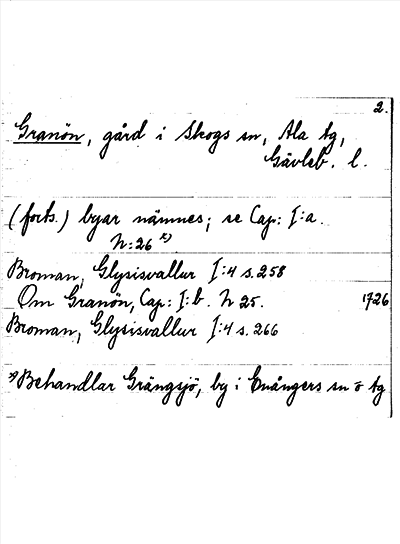 2.
Granön, gård i Skogs sn, Ala tg,
Gävleb. l.
(forts.) byar nämnes; se Cap: I:a.
N:26 x)
Broman, Glysisvallur I:4 s. 258
Om Granön, Cap: I:b. N 25. 1726
Broman, Glysisvallur I:4 s. 266
x) Behandlar Grängsjö, by i Enångers sn o tg